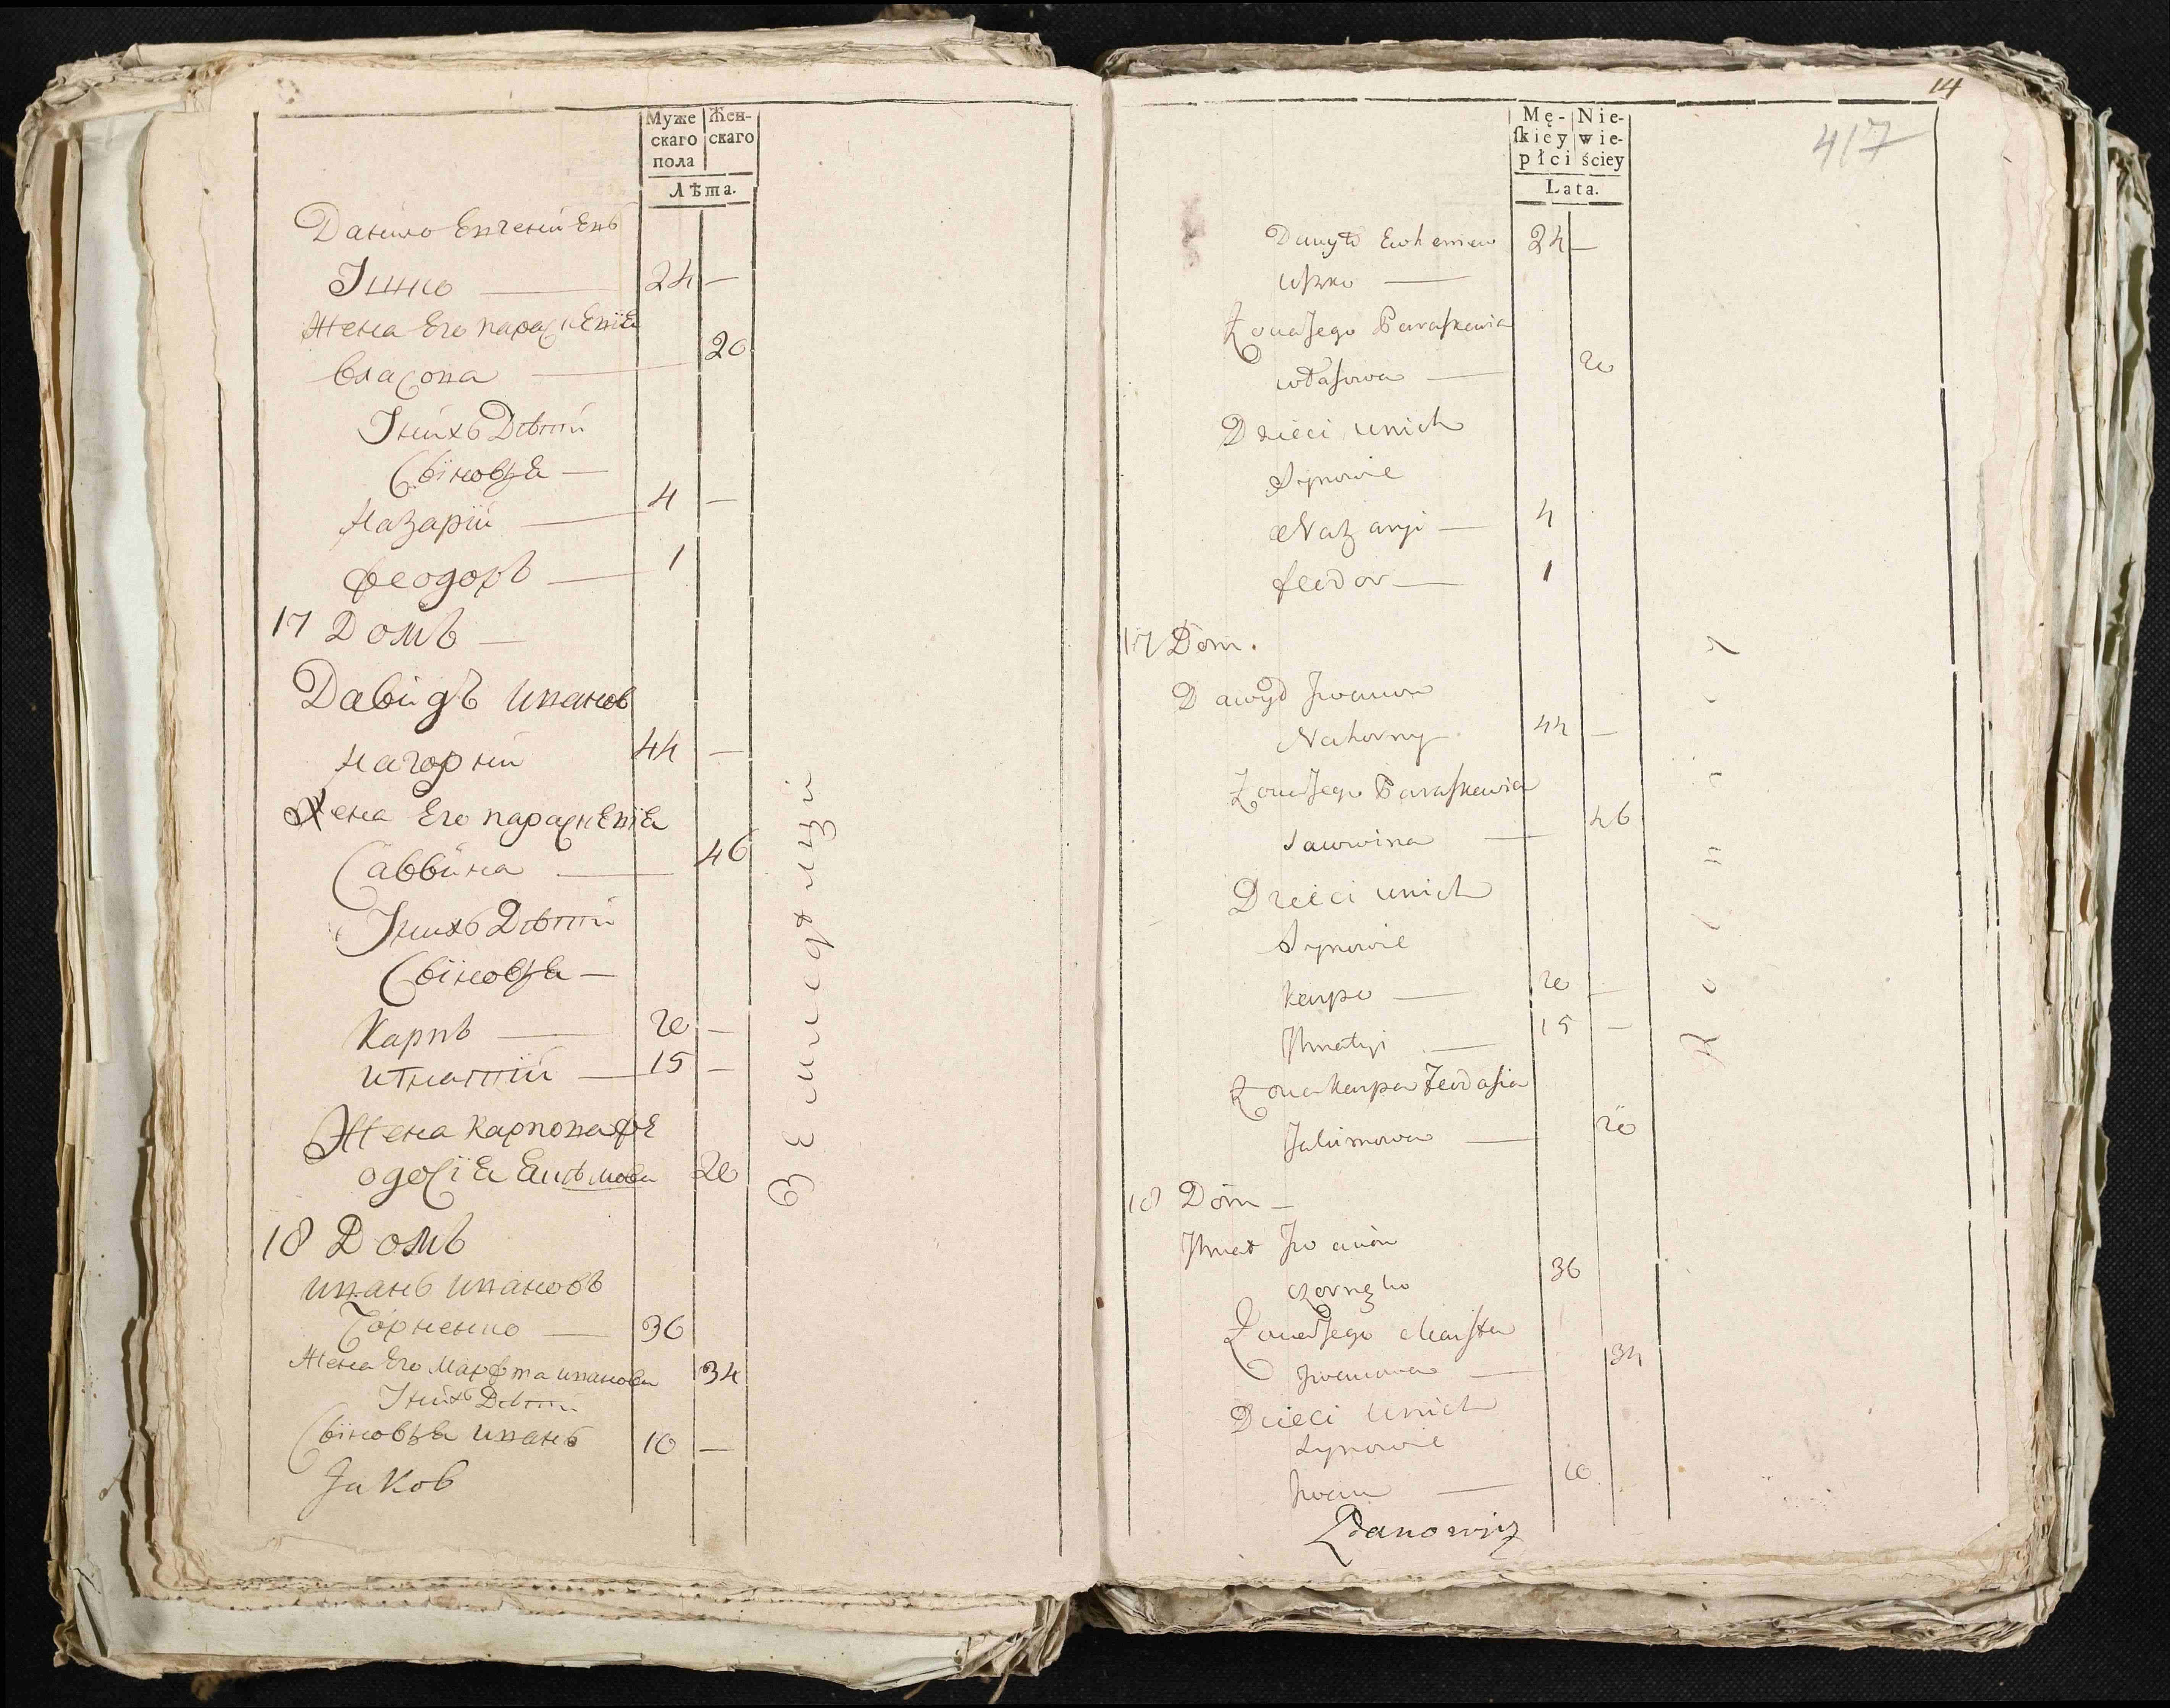 Муже
скаго
пола
Жен-
скаго
Лѣта.
Данило Евгениевъ
Ішко — 24 —
Жена Его параскевіѧ
власова — 20
Ѹнихъ Дѣти
Сыновѧ —
Назарій — 4 —
Феодоръ — 1
17 Домъ —
Давидъ Иванов
Нагорни 44 —
Жена Его параскевіѧ
Саввина — 46
Ѹнихъ Дѣти
Сыновѧ —
Карпъ — 20 —
Игнатій — 15 —
Жена карпова Фе
одосіѧ Еѳимова 20
18 Домъ
Иванъ Ивановъ
Чорненко — 36
Жена Его Марфта иванова 34
Ѹнихъ Дѣти
Сыновѧ иванъ 10 —
Яков
Земледѣлцы
14
417
Mę-
ſkiéy
płci
Nie-
wie-
ściey
Lata.
Danyło Ewheniew 24 —
Zona Jego Paraskewia
własowa — 20
Dzieci unich
Synowie
Nazaryi — 4
Feodor — 1
17 Dom.
Dawyd Iwanow
Nahorny 44 —
Zona Jego Paraskewia
Sawwina — 46
Dzieci unich
Synowie
karpo — 20 —
Ihnatyi — 15 —
Zona karpa Feodasia
Jafimowa — 20
18 Dom —
Ihnat Iwanow
czornęko 36
Zona Jego Marfta
Iwanowa — 34
Dzieci unich
Synowie
Iwan — 10
Rolnicy
Zdanowicz